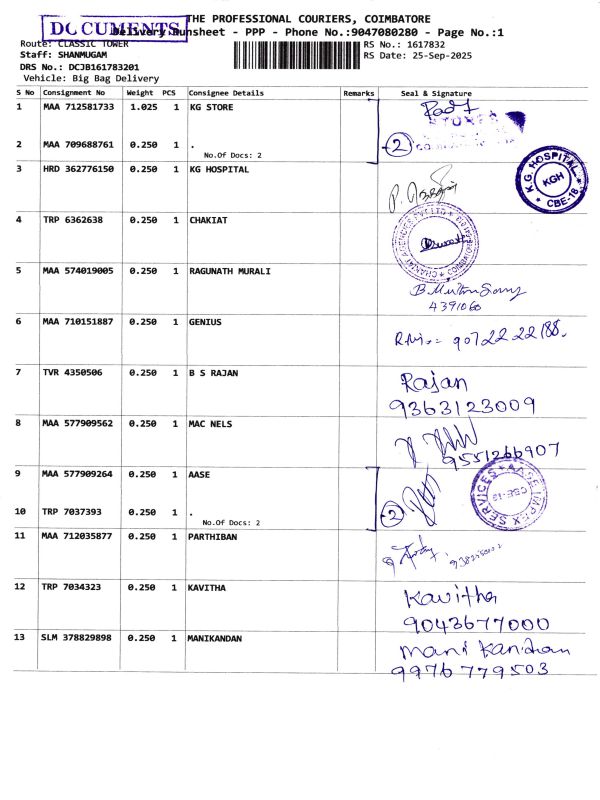 THE PROFESSIONAL COURIERS, COIMBATORE
DOCUMENTS
Delivery Runsheet - PPP - Phone No.:9047080280 - Page No.:1
Route: CLASSIC TOWER
RS No.: 1617832
Staff: SHANMUGAM
RS Date: 25-Sep-2025
DRS No.: DCJB161783201
Vehicle: Big Bag Delivery
S No Consignment No Weight PCS Consignee Details Remarks Seal & Signature
1 MAA 712581733 1.025 1 KG STORE
2 MAA 709688761 0.250 1 . 2
No.Of Docs: 2
3 HRD 362776150 0.250 1 KG HOSPITAL
K.G. HOSPITAL
KGH
CBE-18
4 TRP 6362638 0.250 1 CHAKIAT
5 MAA 574019005 0.250 1 RAGUNATH MURALI
4391060
6 MAA 710151887 0.250 1 GENIUS
7 TVR 4350506 0.250 1 B S RAJAN
Rajan
9363123009
8 MAA 577909562 0.250 1 MAC NELS
9551266907
9 MAA 577909264 0.250 1 AASE
AASE IMPEX SERVICES
10 TRP 7037393 0.250 1 . 2
No.Of Docs: 2
11 MAA 712035877 0.250 1 PARTHIBAN
12 TRP 7034323 0.250 1 KAVITHA
Kavitha
9043677000
13 SLM 378829898 0.250 1 MANIKANDAN
Mani Kandan
9976779503